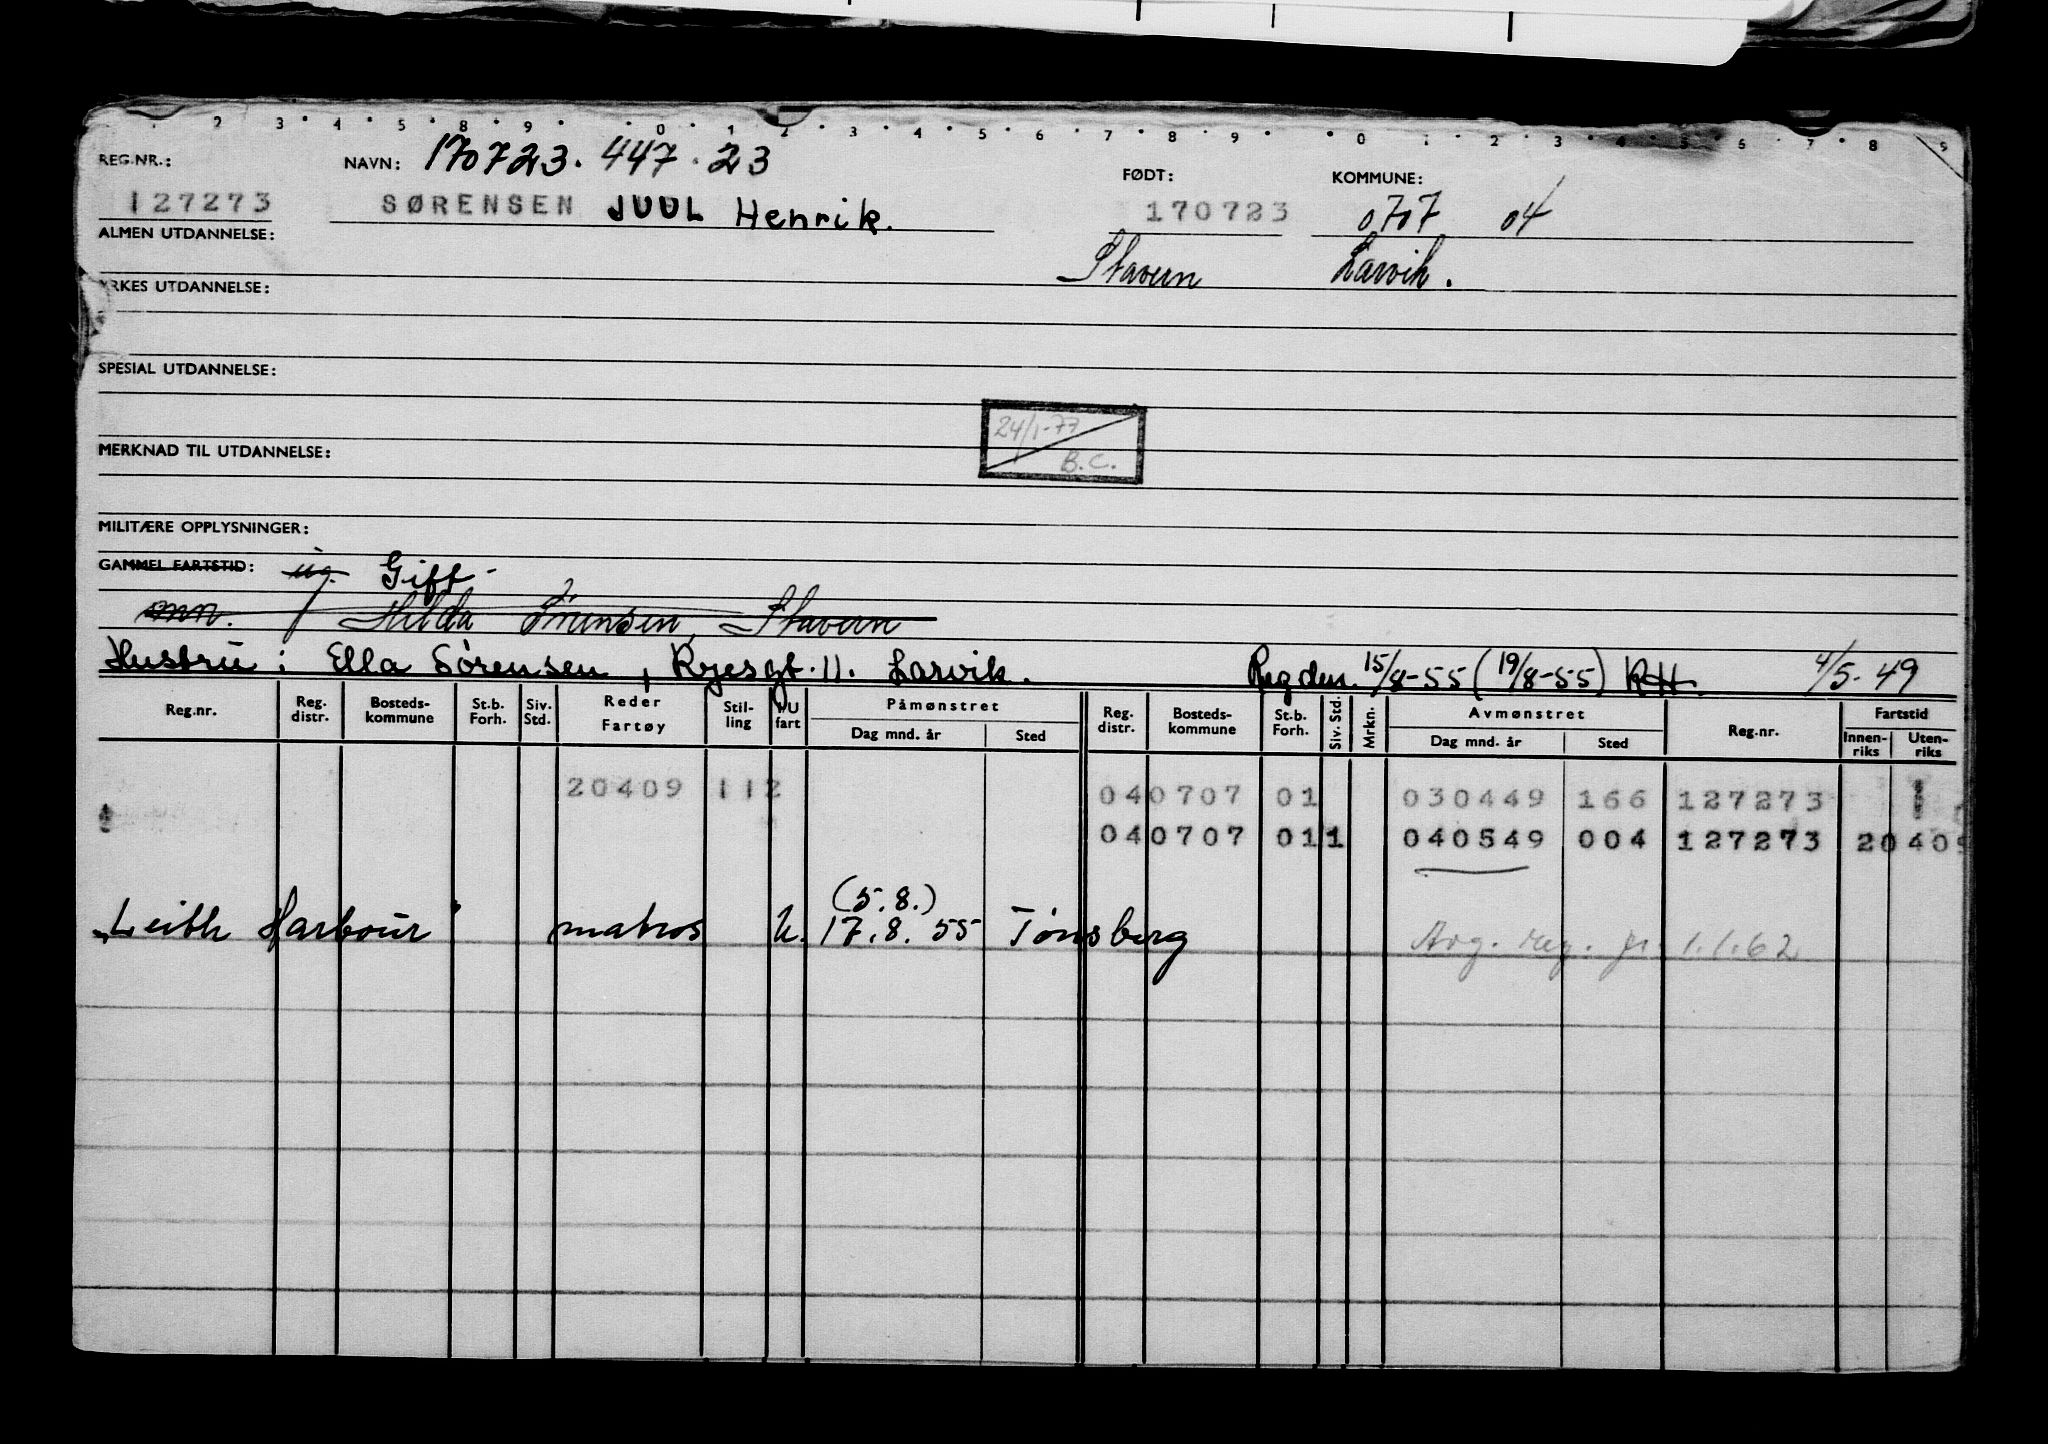 2 3 4 5 8 9 0 1 2 3 4 5 6 7 8 9 0 1 2 3 4 5 6 7 8 9
REG.NR.: NAVN: 170723. 447.23 FØDT: KOMMUNE:
127273 SØRENSEN JUUL Henrik. 170723 0707 04
ALMEN UTDANNELSE: Stavern Larvik.
YRKES UTDANNELSE:
SPESIAL UTDANNELSE:
24/1-77
MERKNAD TIL UTDANNELSE: B.C.
MILITÆRE OPPLYSNINGER:
GAMMEL FARTSTID: ug. Gift
Hilda Sørensen, Stavern
Hustru: Ella Sørensen, Ryesgt. 11. Larvik. Reg den. 15/8-55 (19/8-55) RH. 4/5-49
Reg.nr. Reg. distr. Bosteds-kommune St.b. Forh. Siv. Std. Reder Fartøy Stil-ling I/U fart Påmønstret Dag mnd. år Sted Reg. distr. Bosteds-kommune St.b. Forh. Siv. Std. Mrkn. Avmønstret Dag mnd. år Sted Reg.nr. Fartstid Innen-riks Uten-riks
20409 112 040707 01 030449 166 127273
040707 011 040549 004 127273 20409
(5.8.)
Leith Harbour matros U. 17.8.55 Tønsberg Avg. reg. pr. 1.1.62